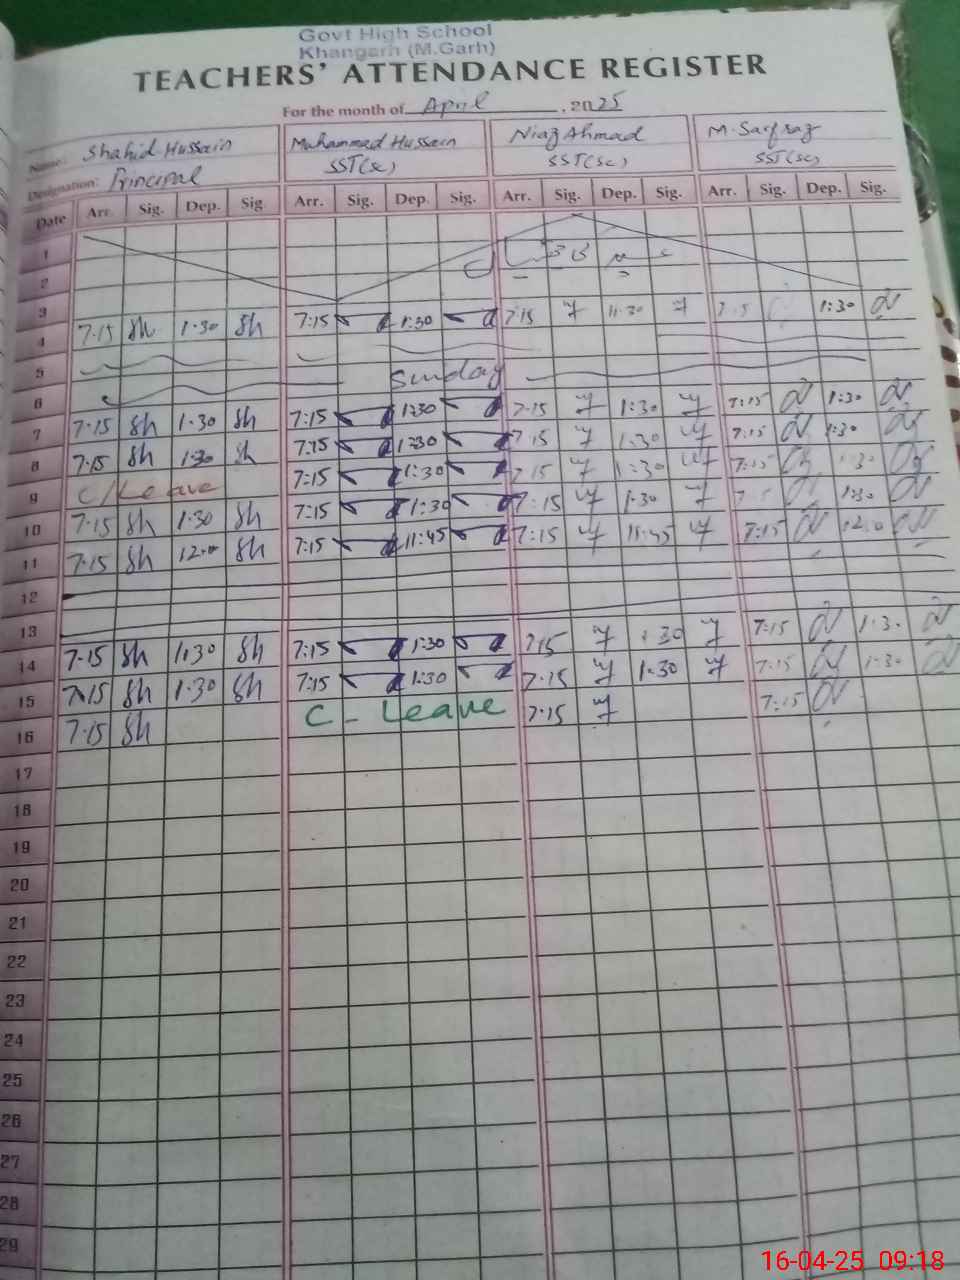 Govt High School
Khangarh (M.Garh)
TEACHERS' ATTENDANCE REGISTER
For the month of April, 2025
Name: Shahid Hussain Muhammad Hussain Niaz Ahmad M. Sarfraz
Designation: Principal SST(Sc) SST(Sc) SST(Sc)
Date Arr. Sig. Dep. Sig. Arr. Sig. Dep. Sig. Arr. Sig. Dep. Sig. Arr. Sig. Dep. Sig.
1
2
3
7.15 Sh 1.30 Sh 7:15 1:30 7.15 11.30 7.15 1:30
4
5
Sunday
6
7.15 Sh 1.30 Sh 7:15 1:30 7.15 1:30 7:15 1:30
7
7.15 Sh 1.30 Sh 7:15 1:30 7.15 1:30 7:15 1:30
8
C/Leave 7:15 1:30 7.15 1:30 7:15 1:30
9
7.15 Sh 1.30 Sh 7:15 1:30 7:15 1:30 1:30
10
7.15 Sh 12.00 Sh 7:15 11:45 7:15 11:45 7:15 12:00
11
12
13
7.15 Sh 1.30 Sh 7:15 1:30 7.15 1.30 7:15 1:30
14
7.15 Sh 1.30 Sh 7:15 1:30 7.15 1.30 7:15 1:30
15
7.15 Sh C - Leave 7.15 7:15
16
17
18
19
20
21
22
23
24
25
26
27
28
29
16-04-25 09:18